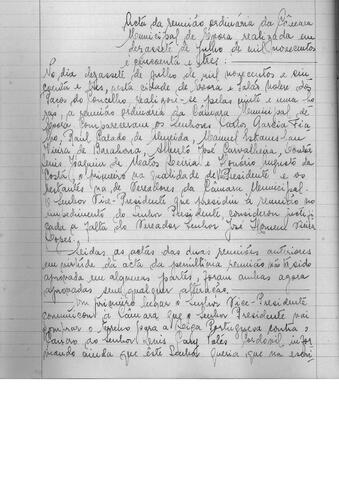 Acta da reunião ordinária da Câmara
Municipal de Évora, realizada em
dezassete de Julho de mil novecentos
e cincoenta e três:
No dia dezassete de Julho de mil novecentos e cin-
coenta e três, nesta cidade de Évora e Salas Nobre dos
Paços do Concelho realizou-se pelas vinte e uma ho-
ras, a reunião ordinária da Câmara Municipal de
Évora. Compareceram os Senhores Carlos Garcia Fia-
lho, Raúl Calado de Almeida, Manuel
Vieira de Barahona, Alberto José Carvalheira, Doutor
Luís Joaquim de Matos e Honório Augusto da
Costa, o primeiro na qualidade de Vice-Presidente e os
restantes na de Vereadores da Câmara Municipal.
O Senhor Vice-Presidente que presidiu à reunião no
impedimento do Senhor Presidente, considerou justifi-
cada a falta do Vereador Senhor José
Lopes.
Lidas as actas das duas reuniões anteriores
em virtude da acta da penúltima reunião não ter sido
aprovada em algumas partes, foram ambas agora
aprovadas sem qualquer alteração.
Em primeiro lugar o Senhor Vice-Presidente
comunicou à Câmara que o Senhor Presidente vai
comprar o para a Liga Portuguesa contra o
Cancro ao Senhor Luís Cordovil, infor-
mando ainda que êste Senhor queria que na escri-